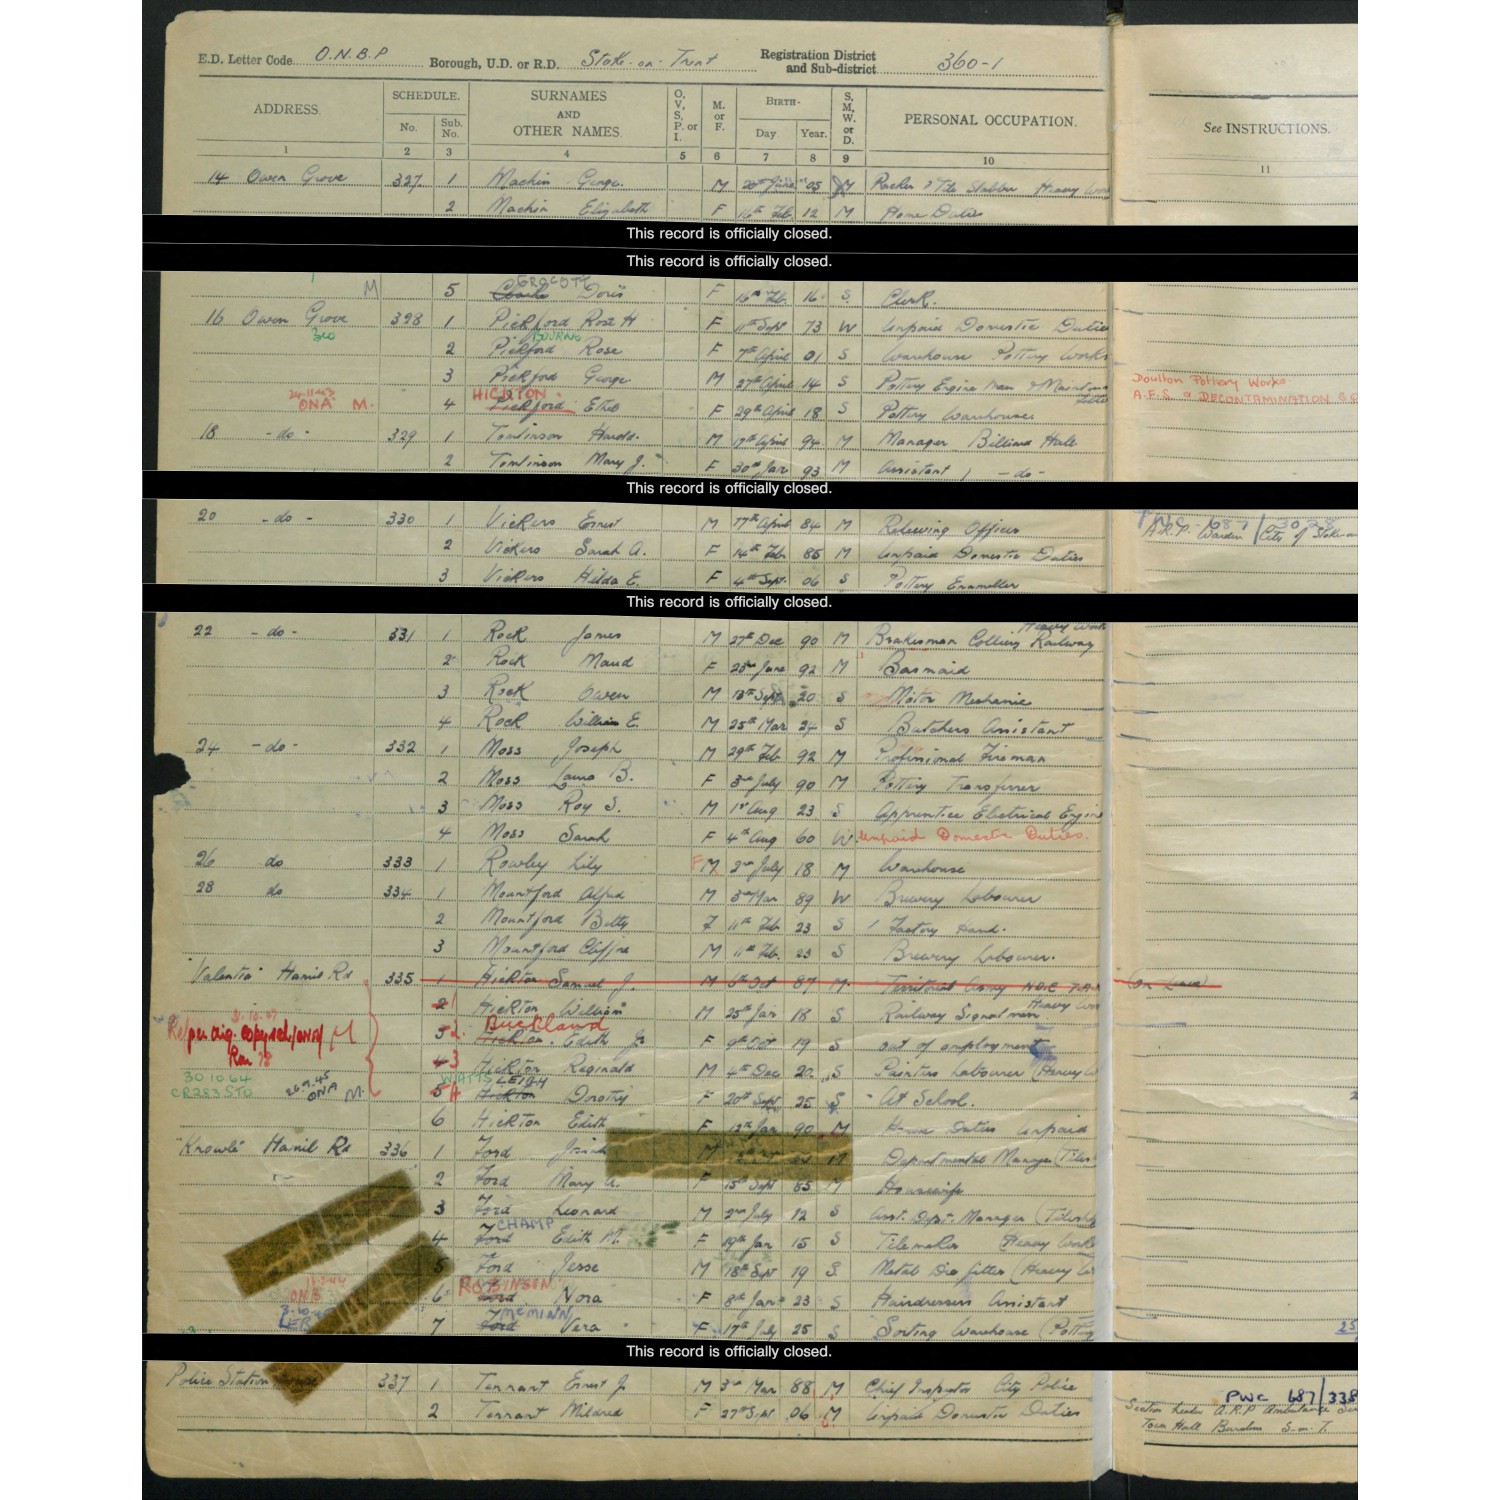 E.D. Letter Code O.N.B.P Borough, U.D. or R.D. Stoke-on-Trent Registration District and Sub-district 360-1
ADDRESS. SCHEDULE. No. Sub. No. SURNAMES AND OTHER NAMES. O, V, S, P. or I. M. or F. BIRTH- Day. Year. S, M, W. or D. PERSONAL OCCUPATION. See INSTRUCTIONS.
1 2 3 4 5 6 7 8 9 10 11
14 Owen Grove 327 1 Machin George. M 05 M Heavy
2 Machin Elizabeth F 16th Feb 12 M Home Duties
This record is officially closed.
This record is officially closed.
GROCOTT
M 5 Doris F 16th Feb 16 S. Clerk.
16 Owen Grove 328 1 Pickford Rose H F 11th Sept 73 W Unpaid Domestic Duties
BOURNE
2 Pickford Rose F 7th April 01 S Warehouse Pottery Works
3 Pickford George M 27th April 14 S Pottery Engine Man Doulton Pottery Works
HICKTON A.F.S. & DECONTAMINATION
ONA M. 4 Pickford F 29th April 18 S Pottery Warehouse
18 - do - 329 1 Tomlinson Harold. M 17th April 94 M Manager Billiard Hall
2 Tomlinson Mary J. F 30th Jan 93 M Assistant - do -
This record is officially closed.
20 - do - 330 1 Vickers Ernest M 17th April 84 M Relieving Officer A.R.P. Warden City of Stoke
2 Vickers Sarah A. F 14th Feb 85 M Unpaid Domestic Duties
3 Vickers Hilda E. F 4th Sept. 06 S Pottery Enameller
This record is officially closed.
Heavy Work
22 - do - 331 1 Rock James M 27th Dec 90 M Brakesman Colliery Railway
2 Rock Maud F June 92 M Barmaid
3 Rock Owen M 18th Sept 20 S Motor Mechanic
4 Rock William E. M 25th Mar 24 S Butchers Assistant
24 - do - 332 1 Moss Joseph M 29th Feb 92 M Professional Fireman
2 Moss Laura B. F 3rd July 90 M Pottery Transferrer
3 Moss Roy S. M 1st Aug 23 S Apprentice Electrical Engin
4 Moss Sarah F 4th Aug 60 W. Unpaid Domestic Duties.
26 do 333 1 Rowley Lily F M 2nd July 18 M Warehouse
28 do 334 1 Mountford Alfred M 3rd Mar 89 W Brewery Labourer
2 Mountford Betty F 11th Feb 23 S Factory Hand.
3 Mountford Clifford M 11th Feb. 23 S Brewery Labourer.
"Valentia" Hamil Rd 335 1 Hickton Samuel J. M 6th Oct 87 M. Territorial Army N.D.C. On Leave
2 1 Hickton William M 25th Jan 18 S Railway Signalman Heavy
Buckland
3 2. Hickton. Edith F 9th Oct 19 S out of employment
4 3 Hickton Reginald M 4th Dec 20. S Painters Labourer (Heavy
WATTS LEIGH
30 10 64
CR283 STO 26.9.45 ONA M. 5 4 Hickton Dorothy F 20th Sept 25 S At School.
6 Hickton Edith F 12th Jan 90 M Duties Unpaid
"Knowle" Hamil Rd 336 1 Ford M M Departmental Manager (Tiles
2 Ford Mary A. F 15th Sept 85 M Housewife
3 Ford Leonard M 2nd July 12 S Asst. Dept. Manager (Tiles
CHAMP
4 Ford Edith M. F 19th Jan 15 S Tilemaker Heavy Work
5 Ford Jesse M 18th Sept 19 S. Metal Die fitter (Heavy
ROBINSON
6 Ford Nora F 8th Jan 23 S Hairdressers Assistant
McMINN
7 Ford Vera F 17th July 25 S Sorting Warehouse (Pottery
This record is officially closed.
Police Station 337 1 Tennant Ernest J. M 3rd Mar 88 M Chief Inspector City Police PWC 687/338
2 Tennant Mildred F 27th Sept 06 M Unpaid Domestic Duties Section Leader A.R.P Ambulance
Town Hall Burslem S-on-T.